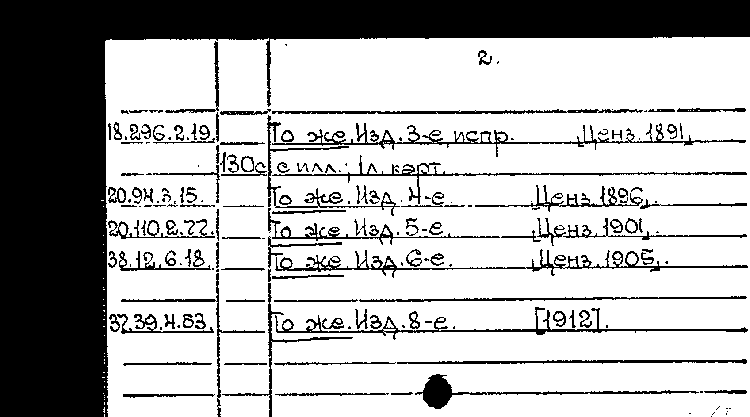 2.
18.296.2.19. То же. Изд. 3-е, испр. Ценз. 1891.
130с. с илл.; 1л. карт.
20.94.3.15. То же. Изд. 4-е. Ценз. 1896.
20.110.2.77. То же. Изд. 5-е. Ценз. 1901.
38.12.6.18. То же. Изд. 6-е. Ценз. 1905.
37.39.4.53. То же. Изд. 8-е. [1912].